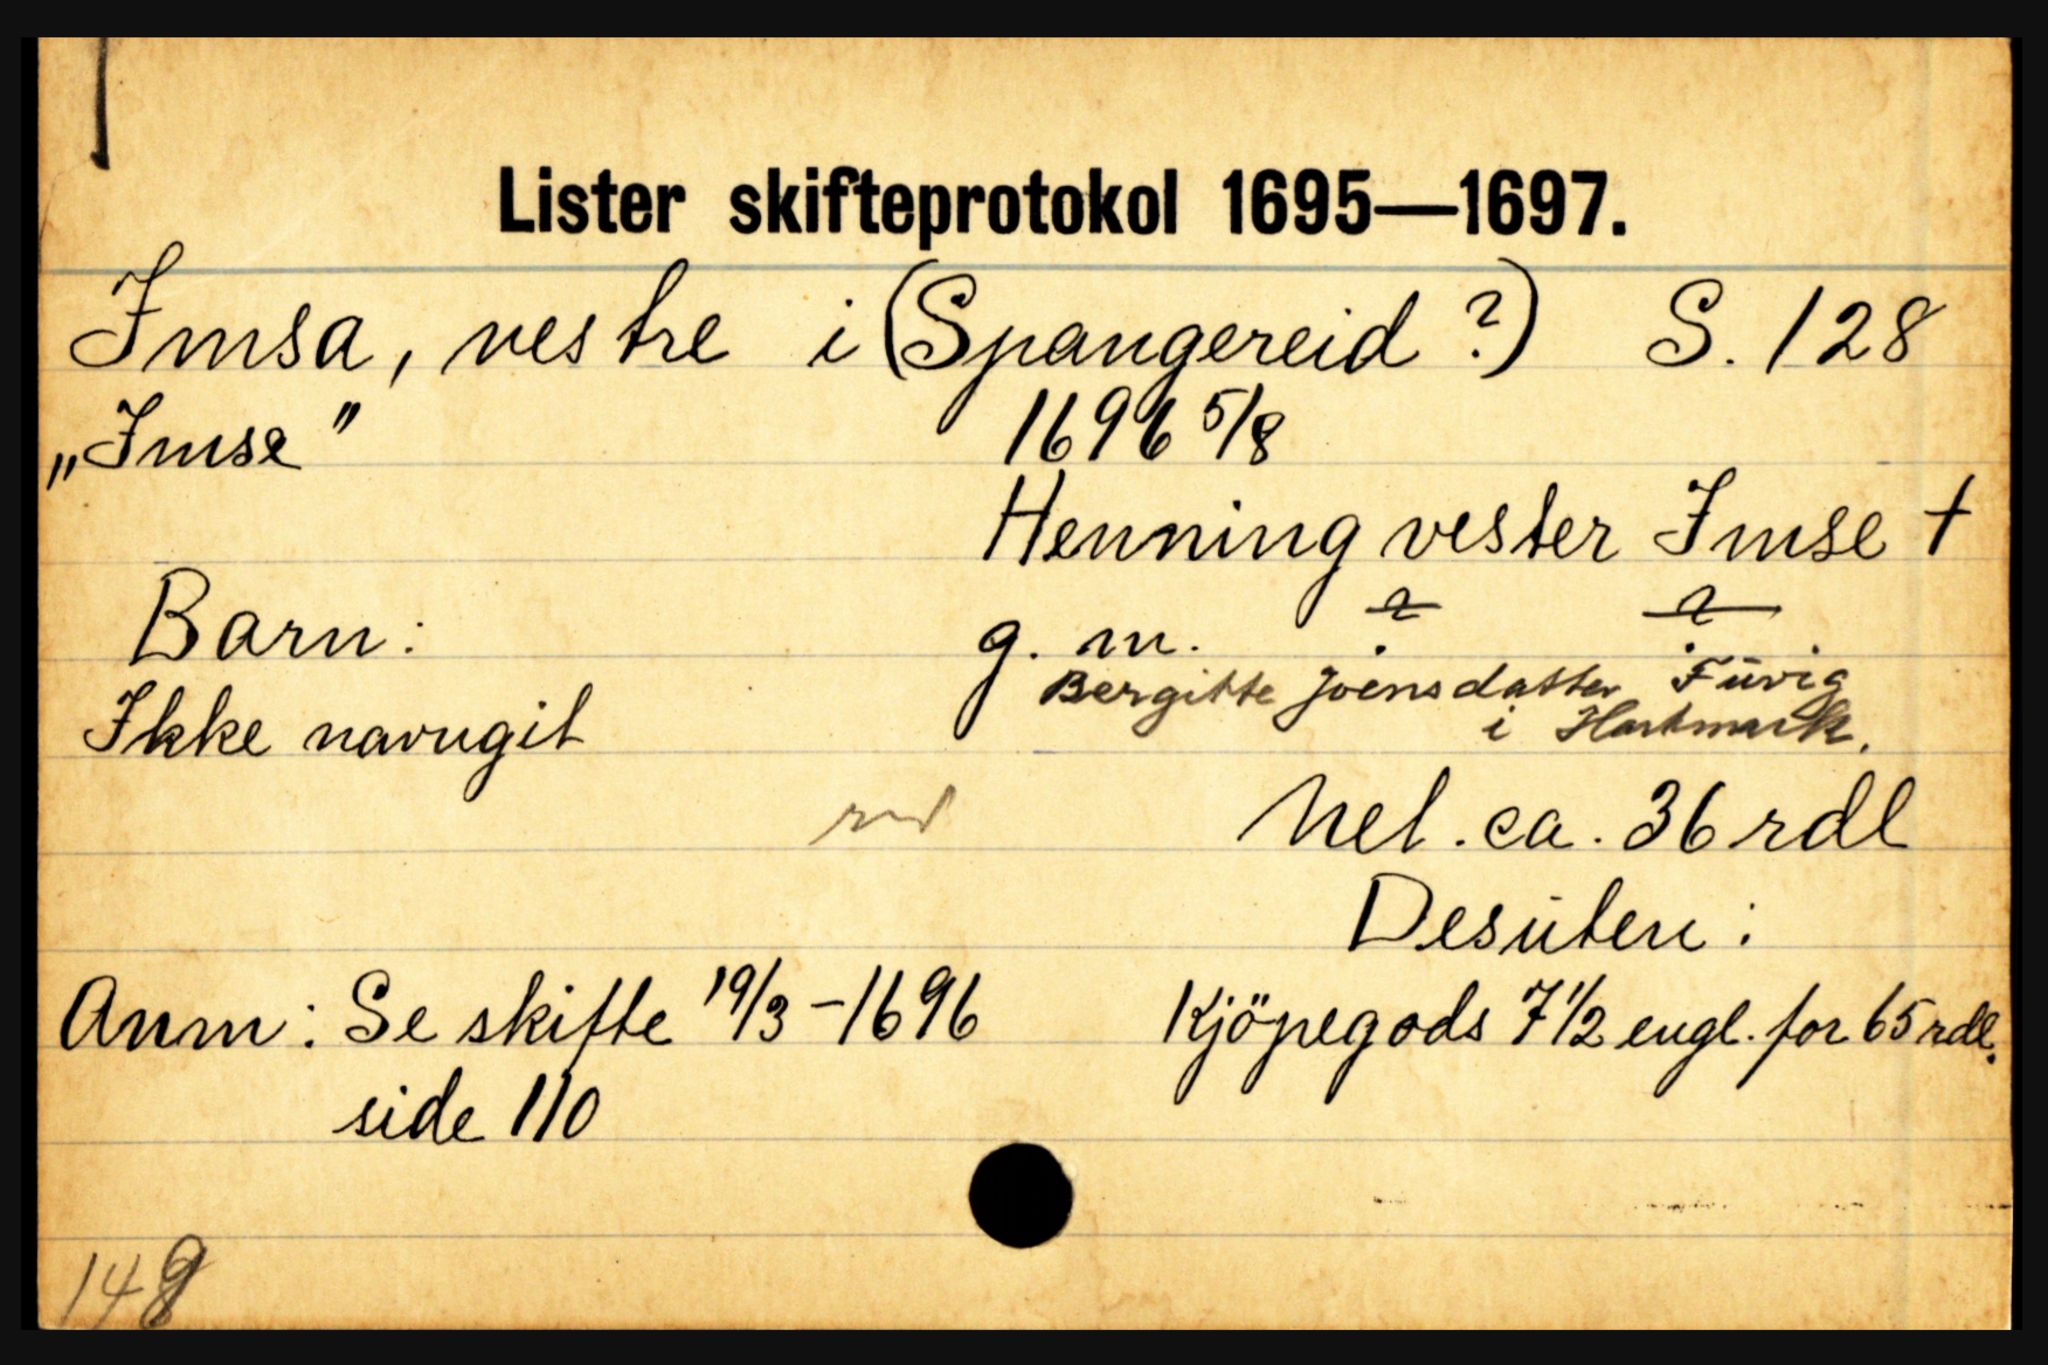 Lister skifteprotokol 1695—1697.
Imsa, vestre i (Spangereid ?) S. 128
„Imse" 1696 5/8
Henning vester Imse †
Barn: g. m. ? ?
Bergitte Joensdatter Fuvig
i Hartmark.
Ikke navngit
Nel. ca. 36 rdl
Desuten:
Anm: Se skifte 19/3 - 1696 Kjöpegods 7 1/2 engl. for 65 rdl.
side 110